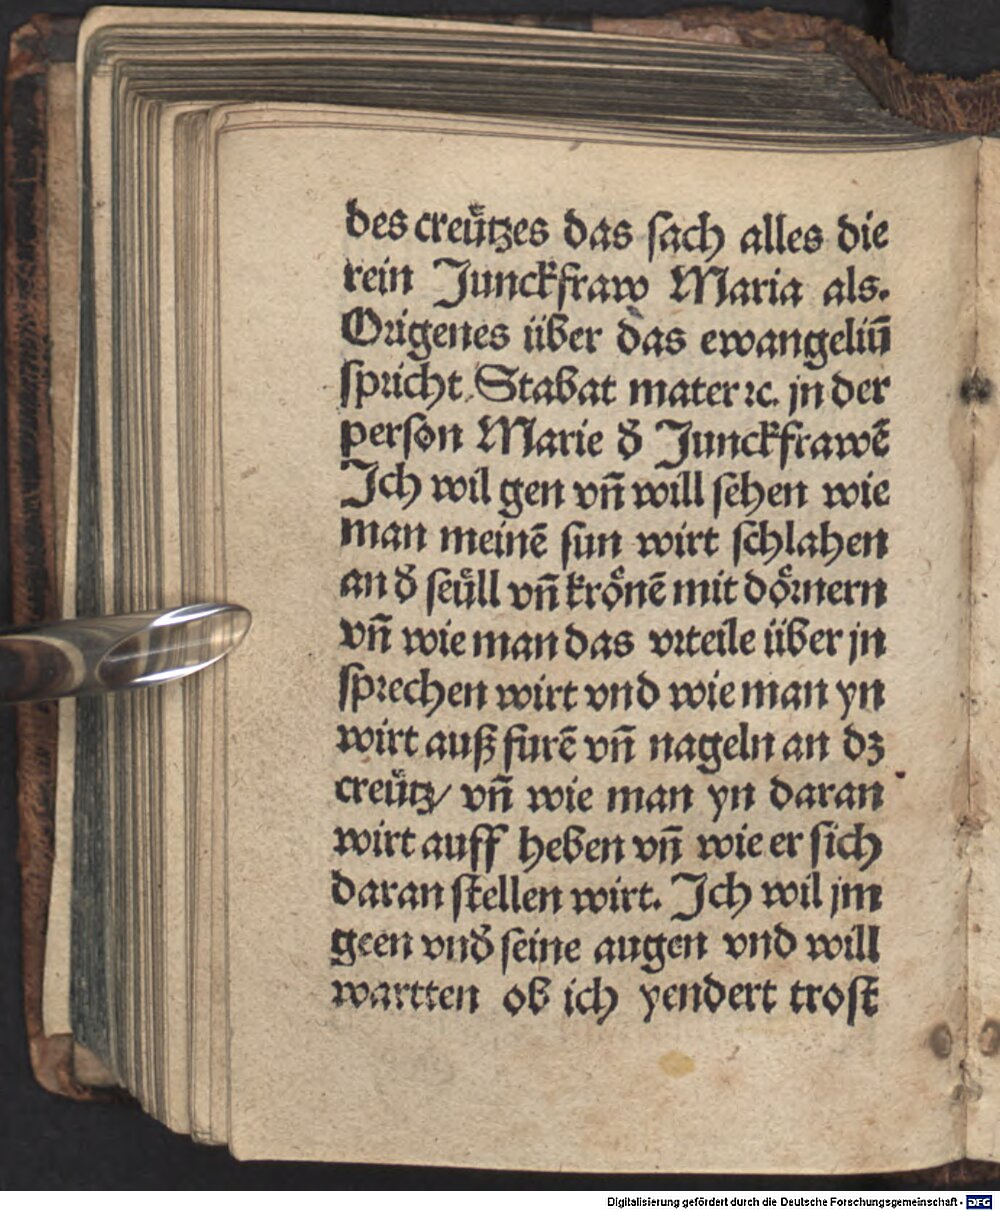 des creützes das sach alles die
rein Junckfraw Maria als.
Origenes über das ewangeliū
spricht Stabat mater ⁊c. jn der
person Marie đ Junckfrawē
Jch wil gen vn̄ will sehen wie
man meinē sun wirt schlahen
an đ seüll vn̄ krönē mit dörnern
vn̄ wie man das vrteile über jn
sprechen wirt vnd wie man yn
wirt auß furē vn̄ nageln an dz
creütz/ vn̄ wie man yn daran
wirt auff heben vn̄ wie er sich
daran stellen wirt. Jch wil jm
geen vnđ seine augen vnd will
wartten ob ich yendert trost
Digitalisierung gefördert durch die Deutsche Forschungsgemeinschaft - DFG